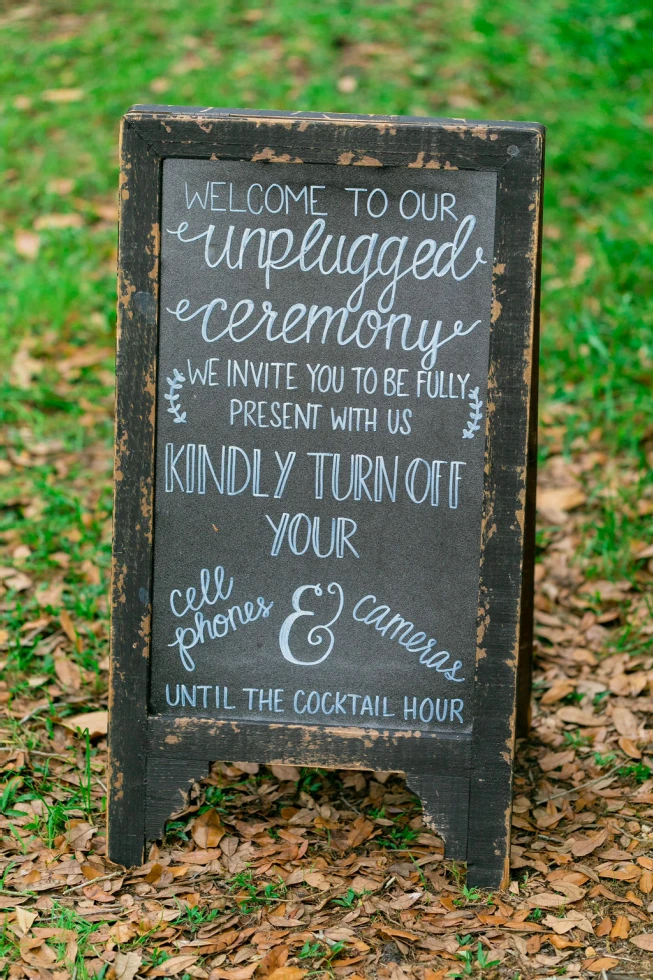 WELCOME TO OUR
unplugged
ceremony
WE INVITE YOU TO BE FULLY
PRESENT WITH US
KINDLY TURN OFF
YOUR
cell
phones & cameras
UNTIL THE COCKTAIL HOUR